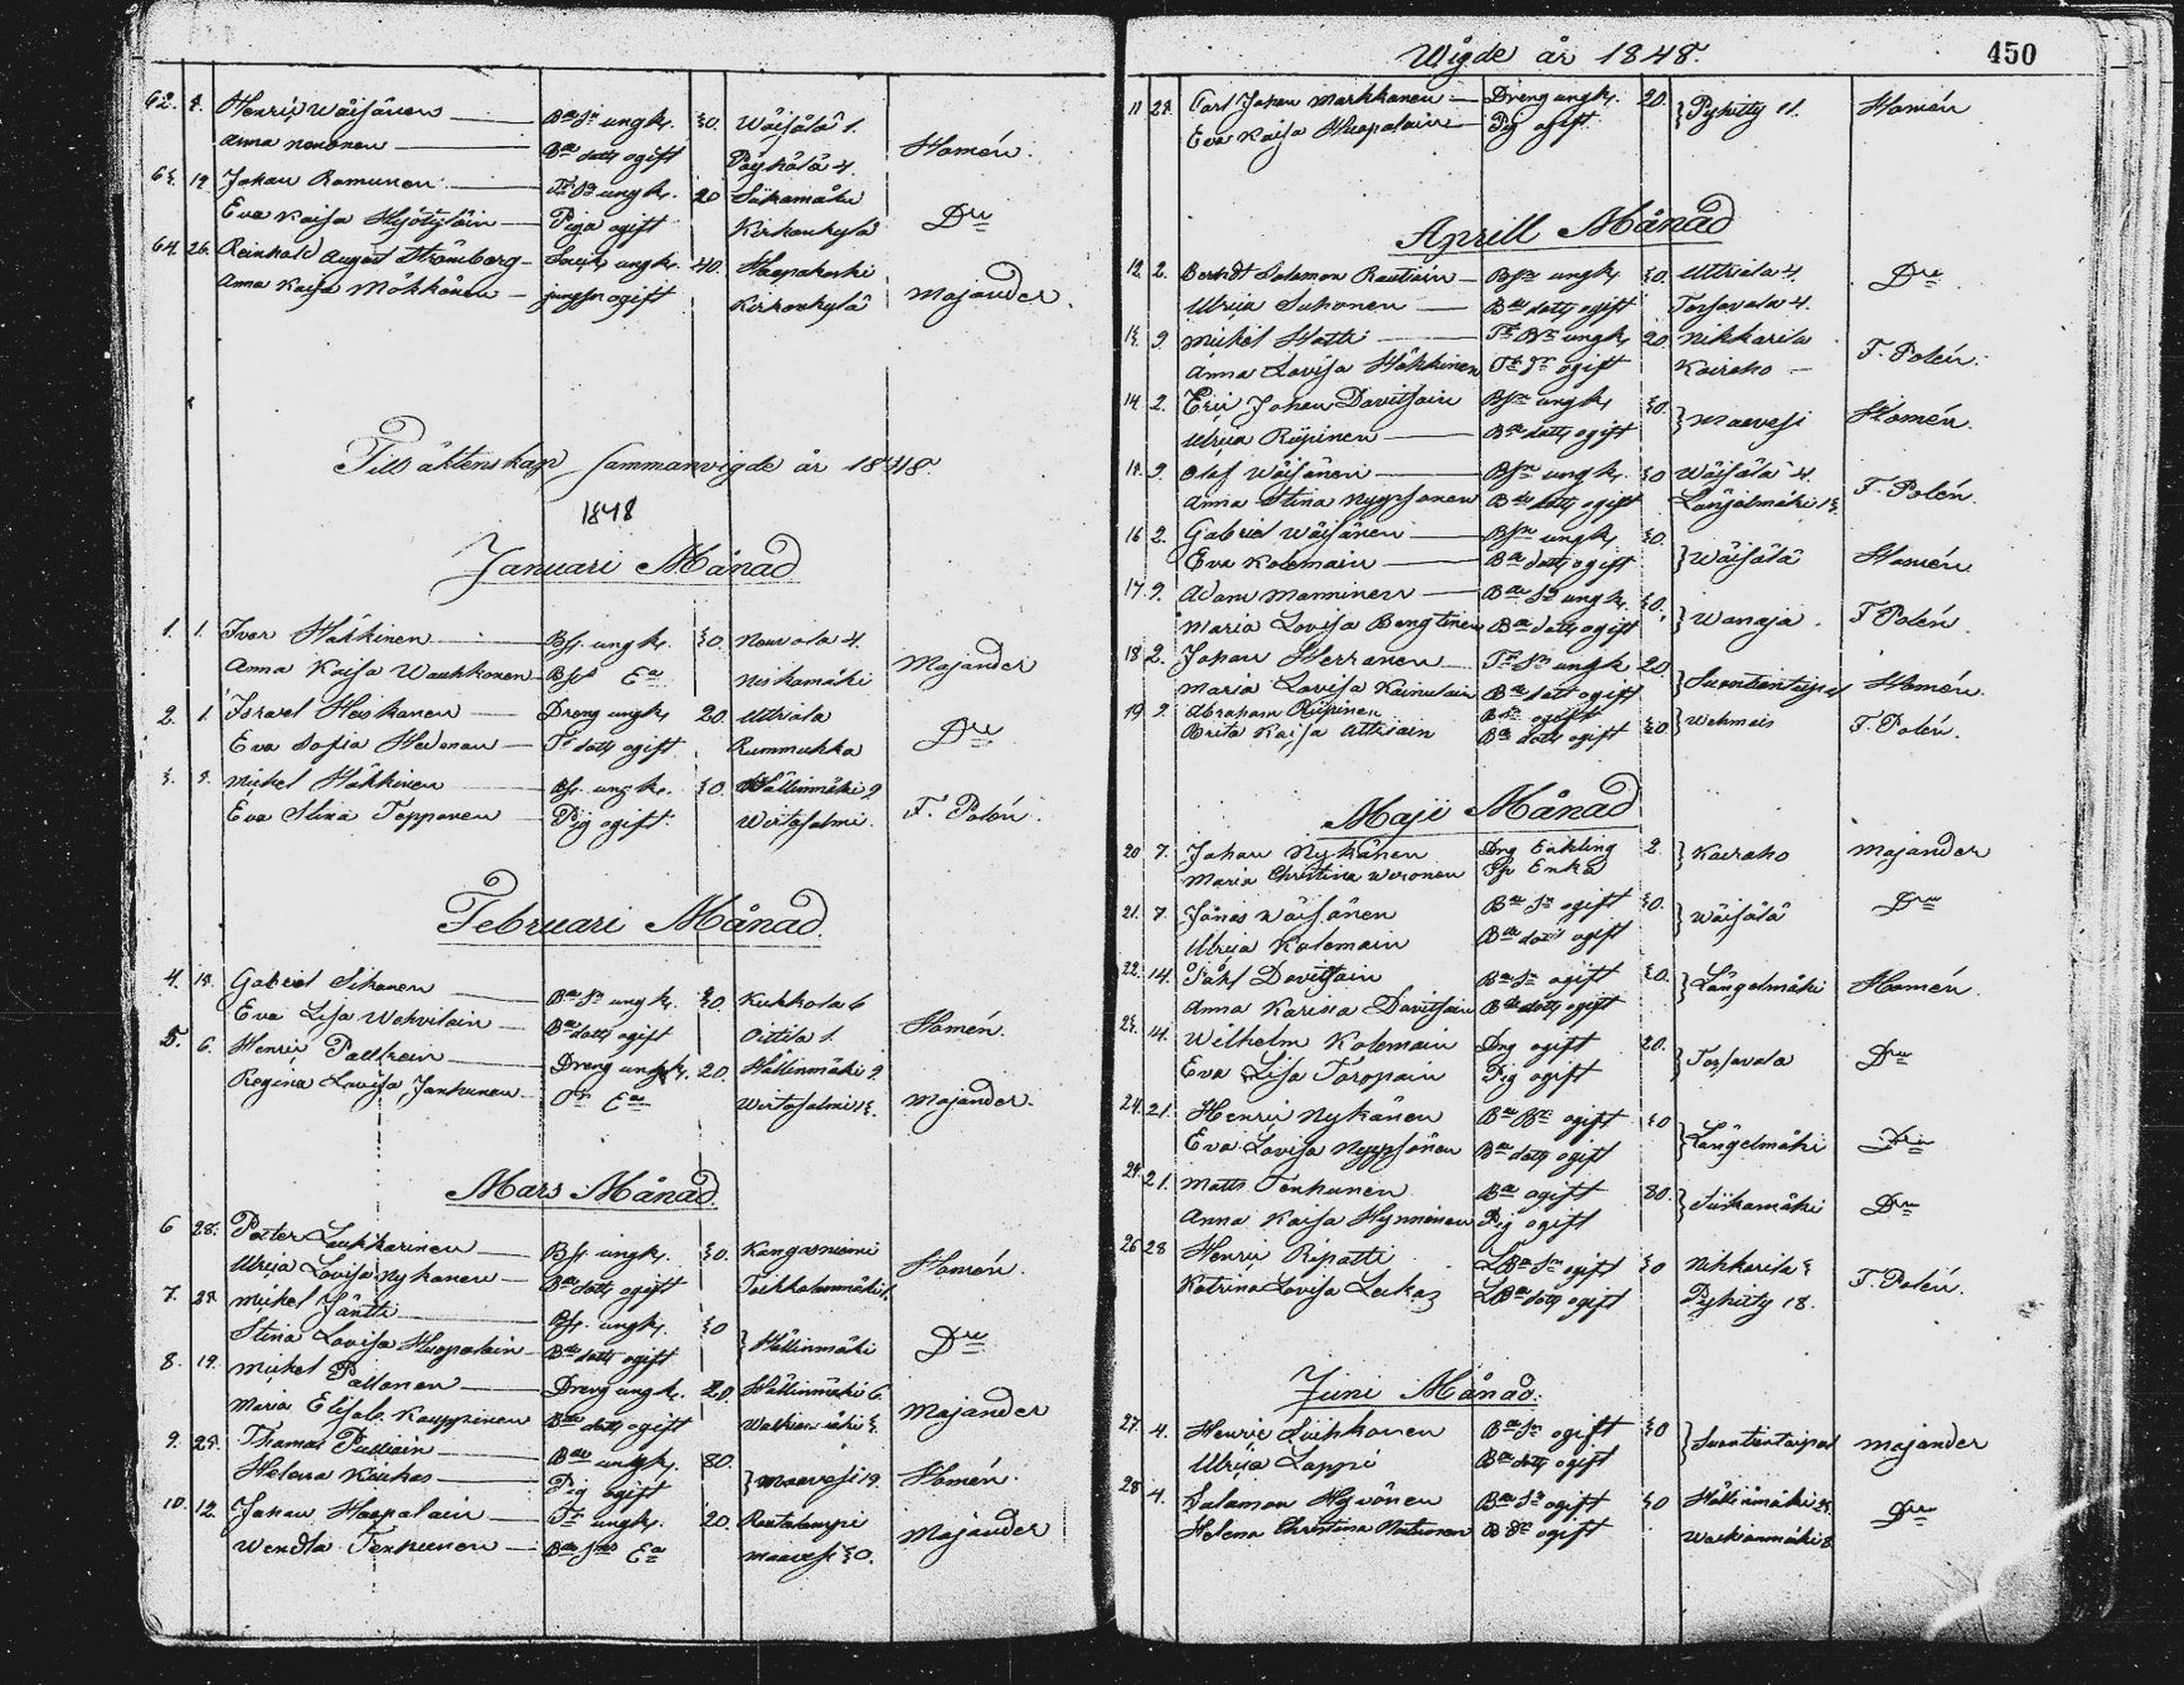 62. Henric Wäisänen Bde Sn ungk. 30. Wäisälä 1.
Anna Nenonen Bde dottr ogift Pöyhölä 4. Homén.
63. 19. Johan Romunen Tr Sn ungk. 20 Säkamäki
Eva Kaisa Hyötyläin Piga ogift Kirkonkylä Dre
64. 26. Reinhold August Strömberg Sock. ungk. 40. Haapakoski
Anna Kaisa Möhkönen jungfr ogift Kirkonkylä Majander.
Till äktenskap sammanvigde år 1848.
1848
Januari Månad
1. 1. Iver Häkkinen Bs. ungk. 30. Nouvola 4.
Anna Kaisa Wauhkonen Neskamäki Majander
2. 1. Israel Heiskanen Dreng ungk. 20. Uttriala
Eva Sofia Hedman Tr dottr ogift Rummukka Dre
3. Mickel Häkkinen Bs. ungk. 30. Hällinmäki 2
Eva Stina Tepponen Pig ogift Wirtasalmi. F. Polén.
Februari Månad
4. Gabriel Sikanen Bde Sn ungk. 30. Kukkola 6
Eva Lisa Wohvilain Bde dottr ogift Oittila 1. Homén.
5. 6. Henric Paukkain Dreng ungk. 20. Hällinmäki 2.
Regina Lovisa Janhunen Ea Wirtasalmi 13. Majander.
Mars Månad
6 28. Petter Laukkarinen Bs. ungk. 30. Kangasniemi
Ulrica Lovisa Nykänen Bde dottr ogift Toikkalanmäki 1. Homén.
7. Mickel Jäntti Bs. ungk. 30
Stina Lovisa Huopalain Bde dottr ogift Hällinmäki Dre
8. 19. Mickel Pallonen Dreng ungk. 20 Hällinmäki 6.
Maria Elisab. Kauppinen Bde dottr ogift Walkiamäki 3. Majander
9. Thomas Pulliain Bde ungk. 80.
Helena Kaukas Pig ogift Maavesi 19. Homén.
10. 12. Johan Haapalain Tr ungk. 20. Rautalampi
Wendla Tenhunen Ea Maavesi 30. Majander
Wigde år 1848. 450
11 Carl Johan Markkanen Dreng ungk. 20. Pyhitty 11. Homén
Eva Kaisa Huopalain Pig ogift
Aprill Månad
12. 2. Berndt Salomon Rautiain Bsn ungk. 30. Uttriala 4. Dre
Ulrica Suhonen Bde dottr ogift Torsavala 4.
13. 9. Mickel Hatti Tr Bn ungk. 20 Nikkarila
Anna Lovisa Häkkinen ogift Kairaho F. Polén.
14 2. Eric Johan Davitsain Bsn ungk. 30. Maavesi Homén.
Ulrica Riipinen Bde dottr ogift
9. Olof Wäisänen Bsn ungk. 30 Wäisälä 4.
Anna Stina Nyyssönen Bde dottr ogift Längelmäki 13. F. Polén.
16 2. Gabriel Wäisänen Bsn ungk. 30.
Eva Kolemain Bde dottr ogift Wäisälä Homén.
17. 9. Adam Manninen Bde Sn ungk. 30.
Maria Lovisa Bengtinen Bde dottr ogift Wanaja. F Polén.
18 2. Johan Herranen Tr Sn ungk 20.
Maria Lovisa Kainulain Bde dott ogift Suontientaipal Homén.
19 9. Abraham Riipinen ogift
Brita Kaisa Attriain Bde dottr ogift 30 Wehmais F. Polén.
Maji Månad
20 7. Johan Nykänen Dng Enkling 2 Kairaho Majander
Maria Christina Woronen Enka
21. 7. Jonas Wäisänen Bde Sn ogift 30. Wäisälä Dre
Ulrica Kolemain Bde dottr ogift
22. 14. Påhl Davitsain Bde Sn ogift 30. Längelmäki Homén.
Anna Karina Davitsain Bde dottr ogift
23. 14. Wilhelm Kolemain Dng ogift 20. Torsavala Dre
Eva Lisa Taropain Pig ogift
24. 21. Henric Nykänen Bde Bn ogift 30
Eva Lovisa Nyyssönen Bde dottr ogift Längelmäki Dre
21. Matts Tenhunen Bde ogift 80. Siikamäki Dre
Anna Kaisa Hynninen Pig ogift
26 28 Henric Ripatti LBde Sn ogift 30 Nikkarila 3
Katrina Lovisa Leckas LBde dottr ogift Pyhitty 18. F. Polén.
Juni Månad.
27. 4. Henric Siikkonen Bde Sn ogift 30 Suontientaipal Majander
Ulrica Lappi Bde dottr ogift
28 4. Salamon Hyvönen Bde Sn ogift 30 Hällinmäki Dre
Helena Christina Natunen ogift Walkiamäki 8